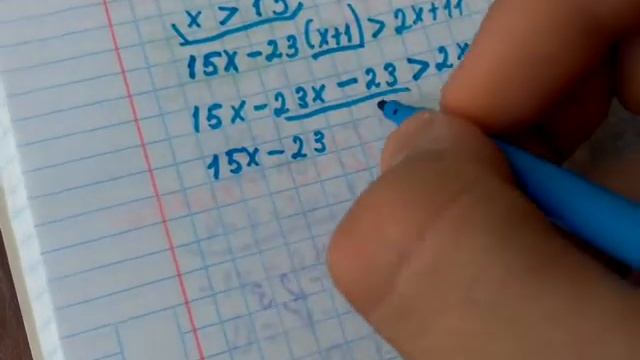 x > 15
15x-23(x+1)>2x+11
15x-23x-23>2x
15x-23